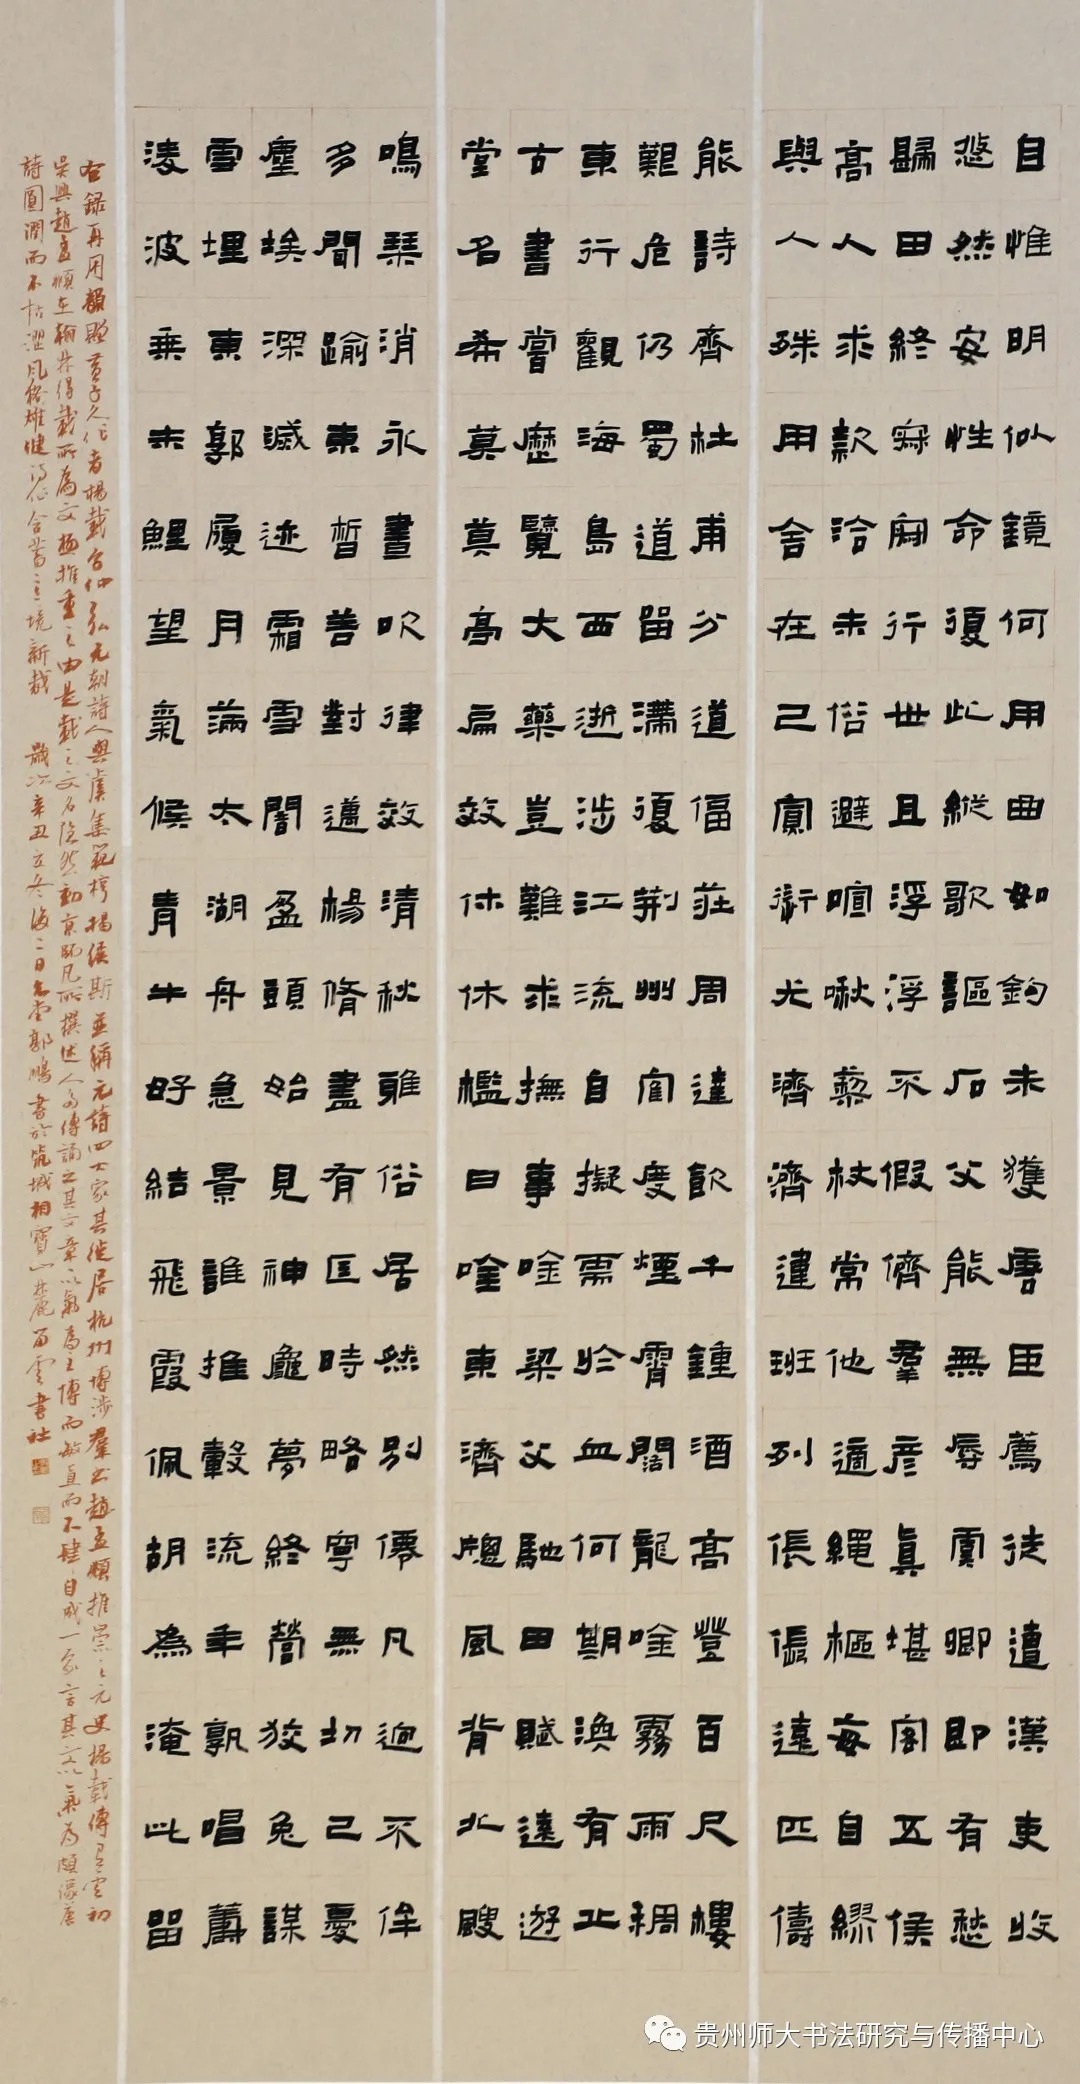 自惟明似鏡何用曲如鉤未獲唐臣薦徒遭漢吏收
悠然安性命復此縱歌謳石父能無辱虞卿即有愁
歸田終寂寂行世且浮浮不假儕羣彥真堪客五侯
高人求款洽未俗避喧啾藜杖常他適繩樞每自繆
與人殊用舍在己寡衍尤濟濟違班列倀倀遠匹儔
能詩齊杜甫分道偪莊周達飲千鍾酒高登百尺樓
艱危仍蜀道留滯復荆州衡度煙霄闊龍唫霧雨稠
東行觀海島西逝涉江流自擬需於血何期渙有丘
古書嘗歷覽大藥豈難求撫事唫梁父馳田賦遠遊
堂名希莫莫高扁效休休檻日唫東濟牕風背北颼
鳴琴消永晝吹律效清秋雖俗居然別儒凡迥不侔
多聞踰東晳善對邁楊脩盡有匡時略寧無切己憂
塵埃深滅迹霜雪闇盈頭始見神龕夢終營狡兔謀
雪埋東郭履月滿太湖舟急景誰推轂流年孰唱籌
淩波乗赤鯉望氣候青牛好結飛霞佩胡為淹此留
右錄再用韻贈黃子久作者楊載字仲弘元朝詩人與虞集范梈揭傒斯並稱元詩四大家其徙居杭州博涉羣書趙孟頫推崇之元史楊載傳有云初
吳興趙孟頫在翰林得載所為文極推重之由是載之文名隱然動京師凡所撰述人多傳誦之其文章以氣為主博而敏直而不肆自成一家言其文以氣為
詩圓潤而不枯澀風格雄健 含蓄意境新 歲次辛丑立冬後二日 郭鵬書於筑城相寶山麓留雲書社
贵州师大书法研究与传播中心